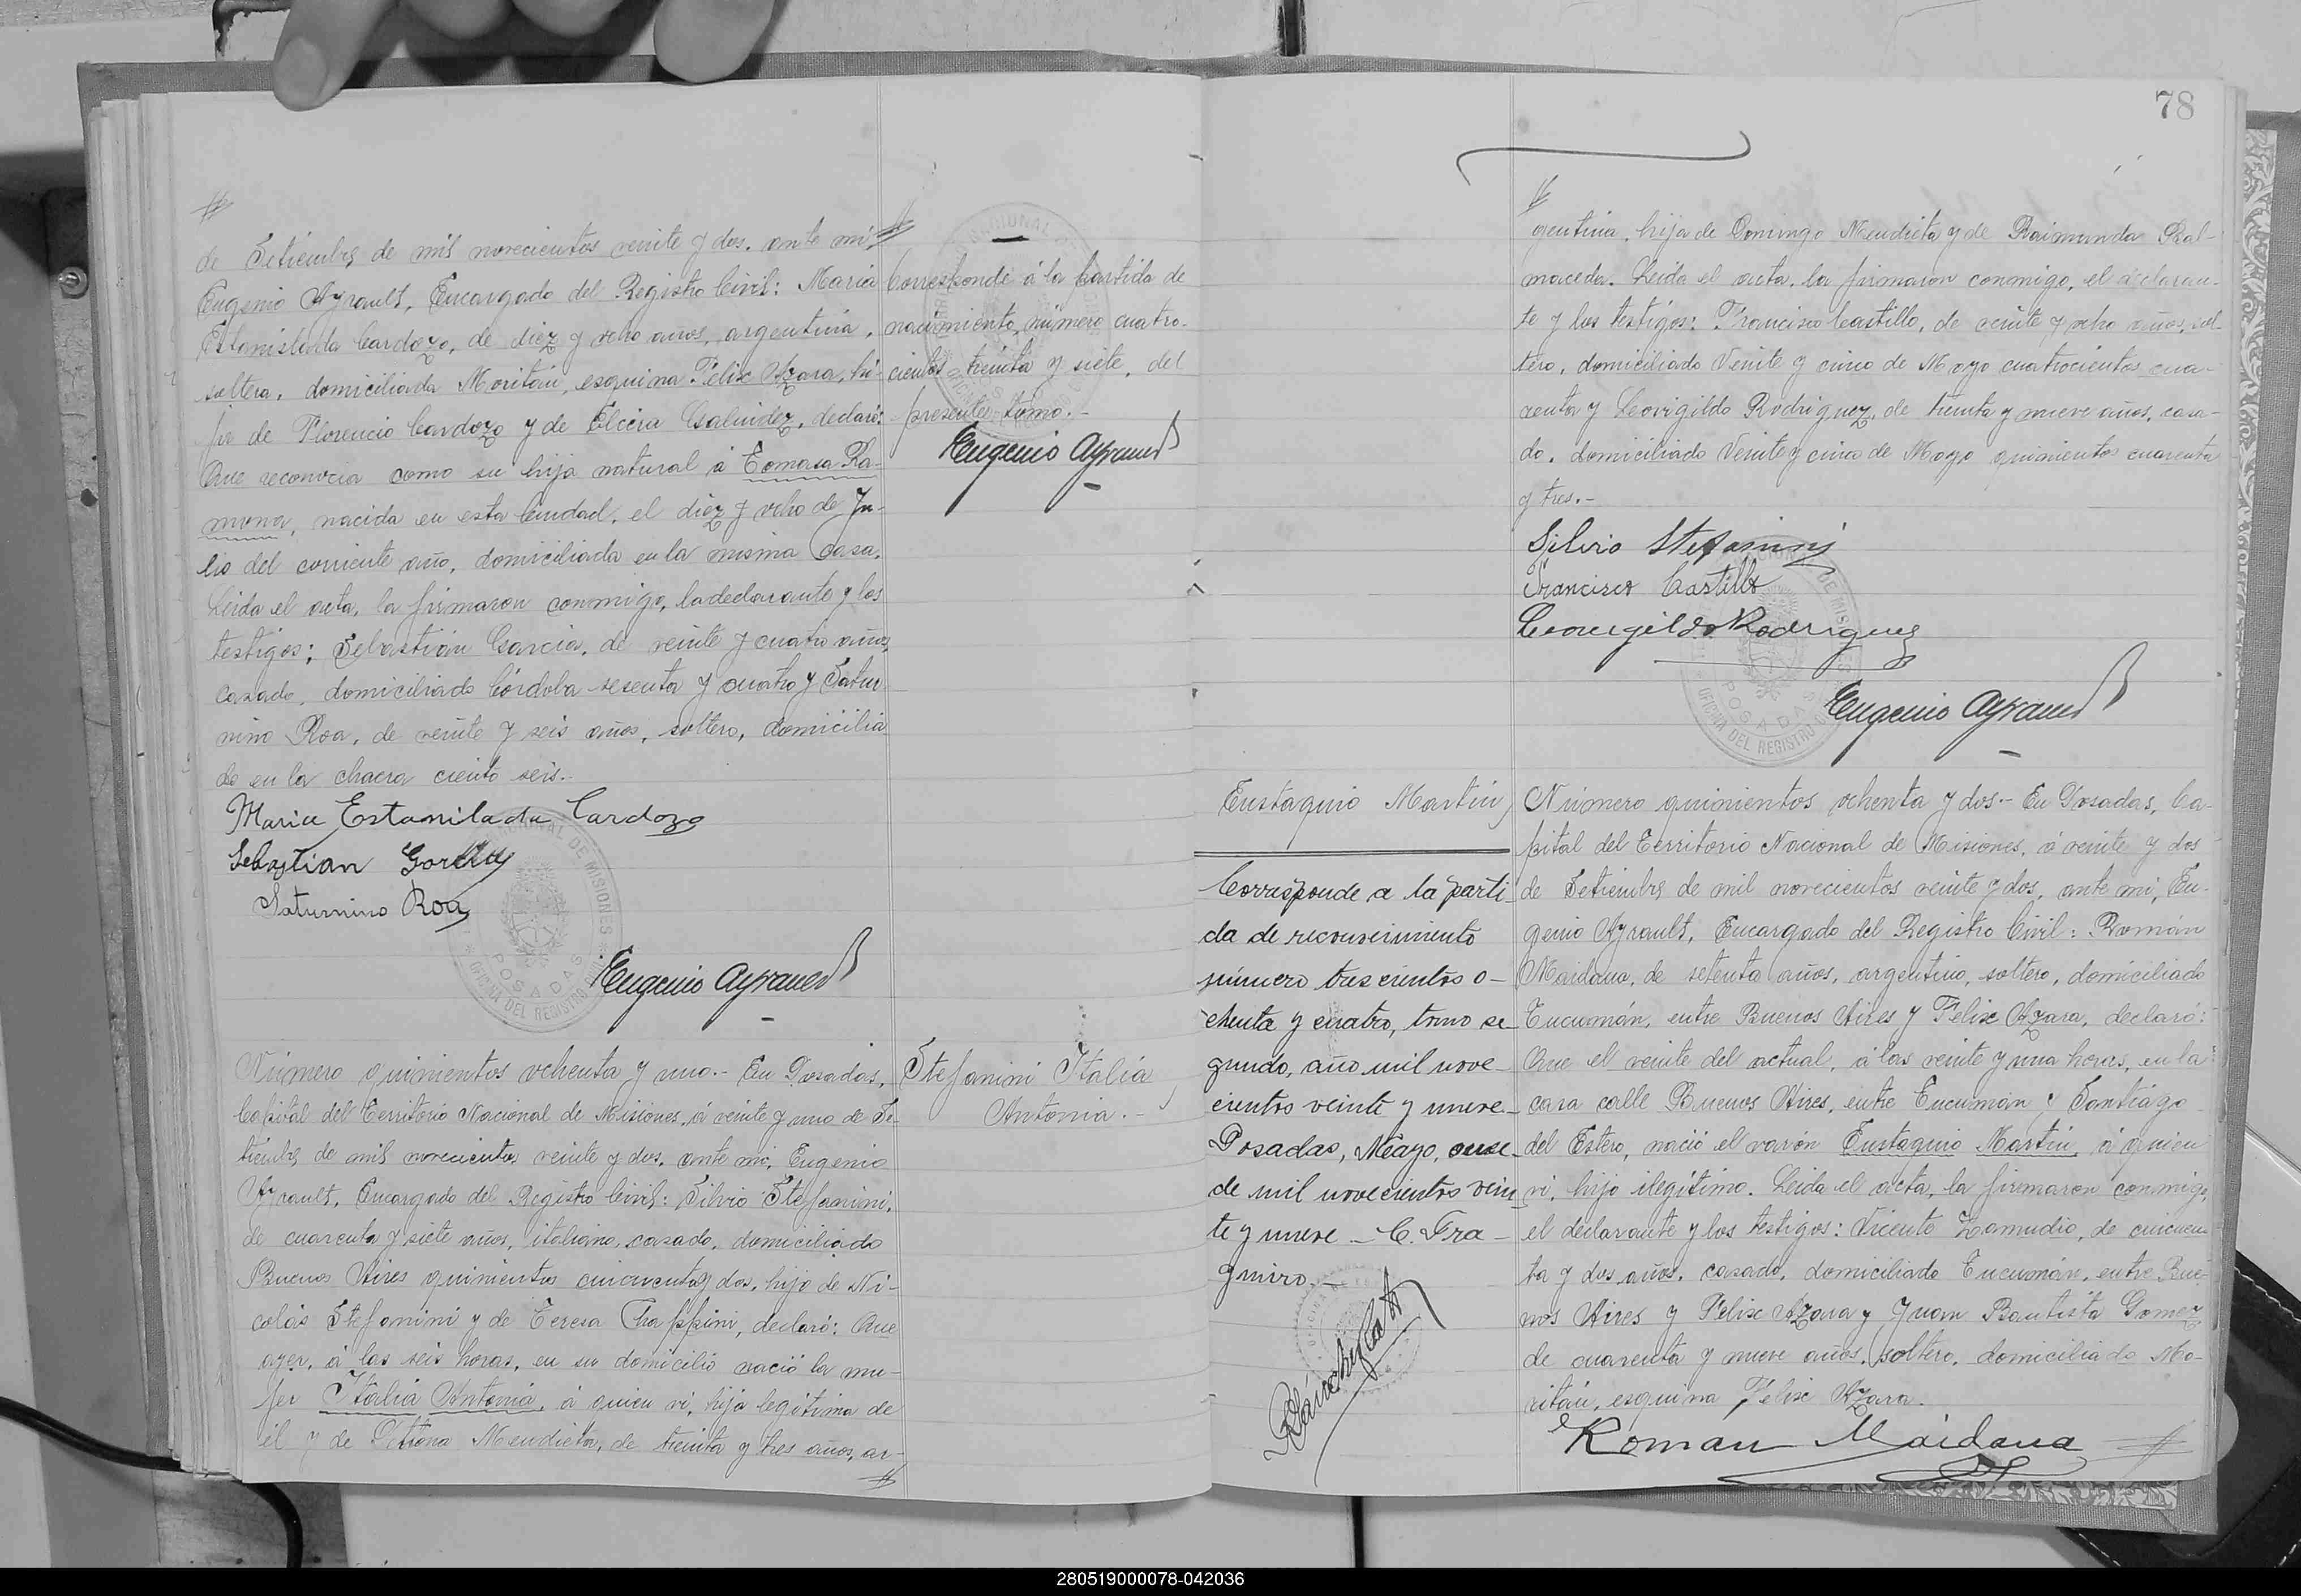 de Setiembre de mil novecientos veinte y dos, ante mi,
Eugenio Ayrault, Encargado del Registro Civil: Maria
Estanislada Cardozo, de diez y ocho años, argentina,
soltera, domiciliada Moritán, esquina Felix Azara, hi-
ja de Florencio Cardozo y de Elcira Galindez, declaró:
Que reconocia como su hija natural á Tomasa Ra-
mona, nacida en esta Ciudad, el diez y ocho de Ju-
lio del corriente año, domiciliada en la misma casa.
Leida el acta, la firmaron conmigo, la declarante y los
testigos: Sebastián Garcia, de veinte y cuatro años,
casado, domiciliado Córdoba sesenta y cuatro y Satur
nino Roa, de veinte y seis años, soltero, domicilia
do en la chacra ciento seis.-
Maria Estanilada Cardozo
Sebastian Garcia
Saturnino Roa
Eugenio Ayrault
NACIONAL DE MISIONES
POSADAS
OFICINA DEL REGISTRO CIVIL
Corresponde á la partida de
nacimiento, número cuatro-
cientos treinta y siete, del
presente tomo.-
Eugenio Ayrault
Número quinientos ochenta y uno.- En Posadas,
Capital del Territorio Nacional de Misiones, á veinte y uno de Se-
tiembre de mil novecientos veinte y dos, ante mi, Eugenio
Ayrault, Encargado del Registro Civil: Silvio Stefanini,
de cuarenta y siete años, italiano, casado, domiciliado
Buenos Aires quinientos cincuenta y dos, hijo de Ni-
colás Stefanini y de Teresa Chappini, declaró: Que
ayer, á las seis horas, en su domicilio nació la mu-
jer Italia Antonia, á quien vi, hija legítima de
él y de Petrona Mendieta, de treinta y tres años, ar-
Stefanini Italia
Antonia.-
78
gentina, hija de Domingo Mendieta y de Raimunda Bal-
maceda. Leida el acta, la firmaron conmigo, el declaran-
te y los testigos: Francisco Castillo, de veinte y ocho años, sol
tero, domiciliado Veinte y cinco de Mayo cuatrocientos cua-
renta y Leovigildo Rodriguez, de treinta y nueve años, casa-
do, domiciliado Veinte y cinco de Mayo quinientos cuarenta
y tres.-
Silvio Stefanini
Francisco Castillo
Leovigildo Rodriguez
Eugenio Ayrault
POSADAS
OFICINA DEL REGISTRO
Eustaquio Martin
Corresponde a la parti-
da de reconocimiento
número trescientos o-
chenta y cuatro, tomo se-
gundo, año mil nove-
cientos veinte y nueve-
Posadas, Mayo, once
de mil novecientos vein
te y nueve - C. Fra-
gueiro.-
Número quinientos ochenta y dos.- En Posadas, Ca-
pital del Territorio Nacional de Misiones, á veinte y dos
de Setiembre de mil novecientos veinte y dos, ante mi, Eu-
genio Ayrault, Encargado del Registro Civil: Román
Maidana, de setenta años, argentino, soltero, domiciliado
Tucumán, entre Buenos Aires y Felix Azara, declaró:
Que el veinte del actual, á las veinte y una horas, en la
casa calle Buenos Aires, entre Tucumán y Santiago
del Estero, nació el varón Eustaquio Martin, á quien
vi, hijo ilegítimo. Leida el acta, la firmaron conmigo,
el declarante y los testigos: Vicente Zamudio, de cincuen
ta y dos años, casado, domiciliado Tucumán, entre Bue-
nos Aires y Felix Azara y Juan Bautista Gomez
de cuarenta y nueve años, soltero, domiciliado Mo-
ritán, esquina Felix Azara.
Román Maidana
280519000078-042036